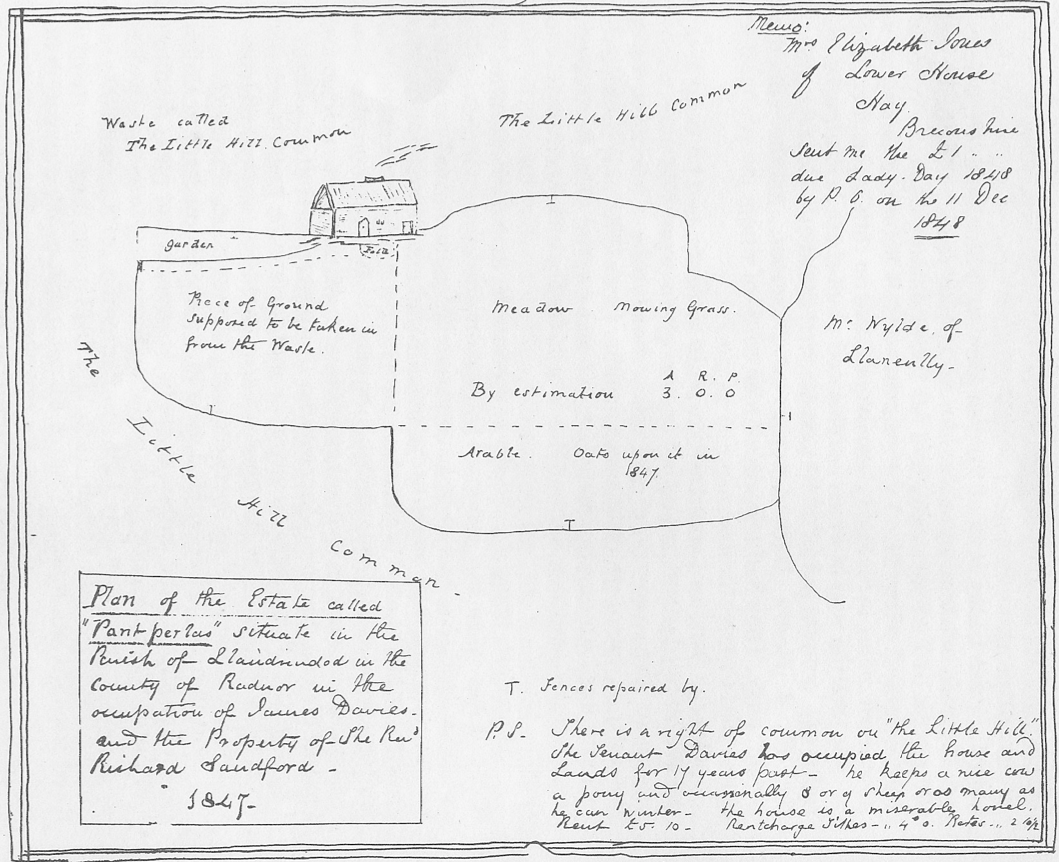 Memo:
Mrs Elizabeth Jones
of Lower House
Hay
Breconshire
sent me the £1 .. ..
due Lady-Day 1848
by P. O. on the 11 Dec
1848
Waste called
The Little Hill Common
The Little Hill Common
garden
Fold
Piece of Ground
supposed to be taken in
from the Waste.
Meadow Mowing Grass.
A R. P.
By estimation 3. 0. 0
Arable. Oats upon it in
1847.
Mr Wylde of
Llanenlly-
The Little Hill Common.
Plan of the Estate called
"Pantperlas" situate in the
Parish of Llandrindod in the
County of Radnor in the
occupation of James Davies.
and the Property of The Revd
Richard Sandford -
1847-
T. Fences repaired by.
P.S. There is a right of common on "the Little Hill".
The Tenant Davies has occupied the house and
Lands for 17 years past - he keeps a nice cow
a pony and occasionally 8 or 9 sheep or as many as
he can winter - the house is a miserable hovel.
Rent £5. 10 - Rentcharge Tithes - .. 4s 0. Rates - .. 2